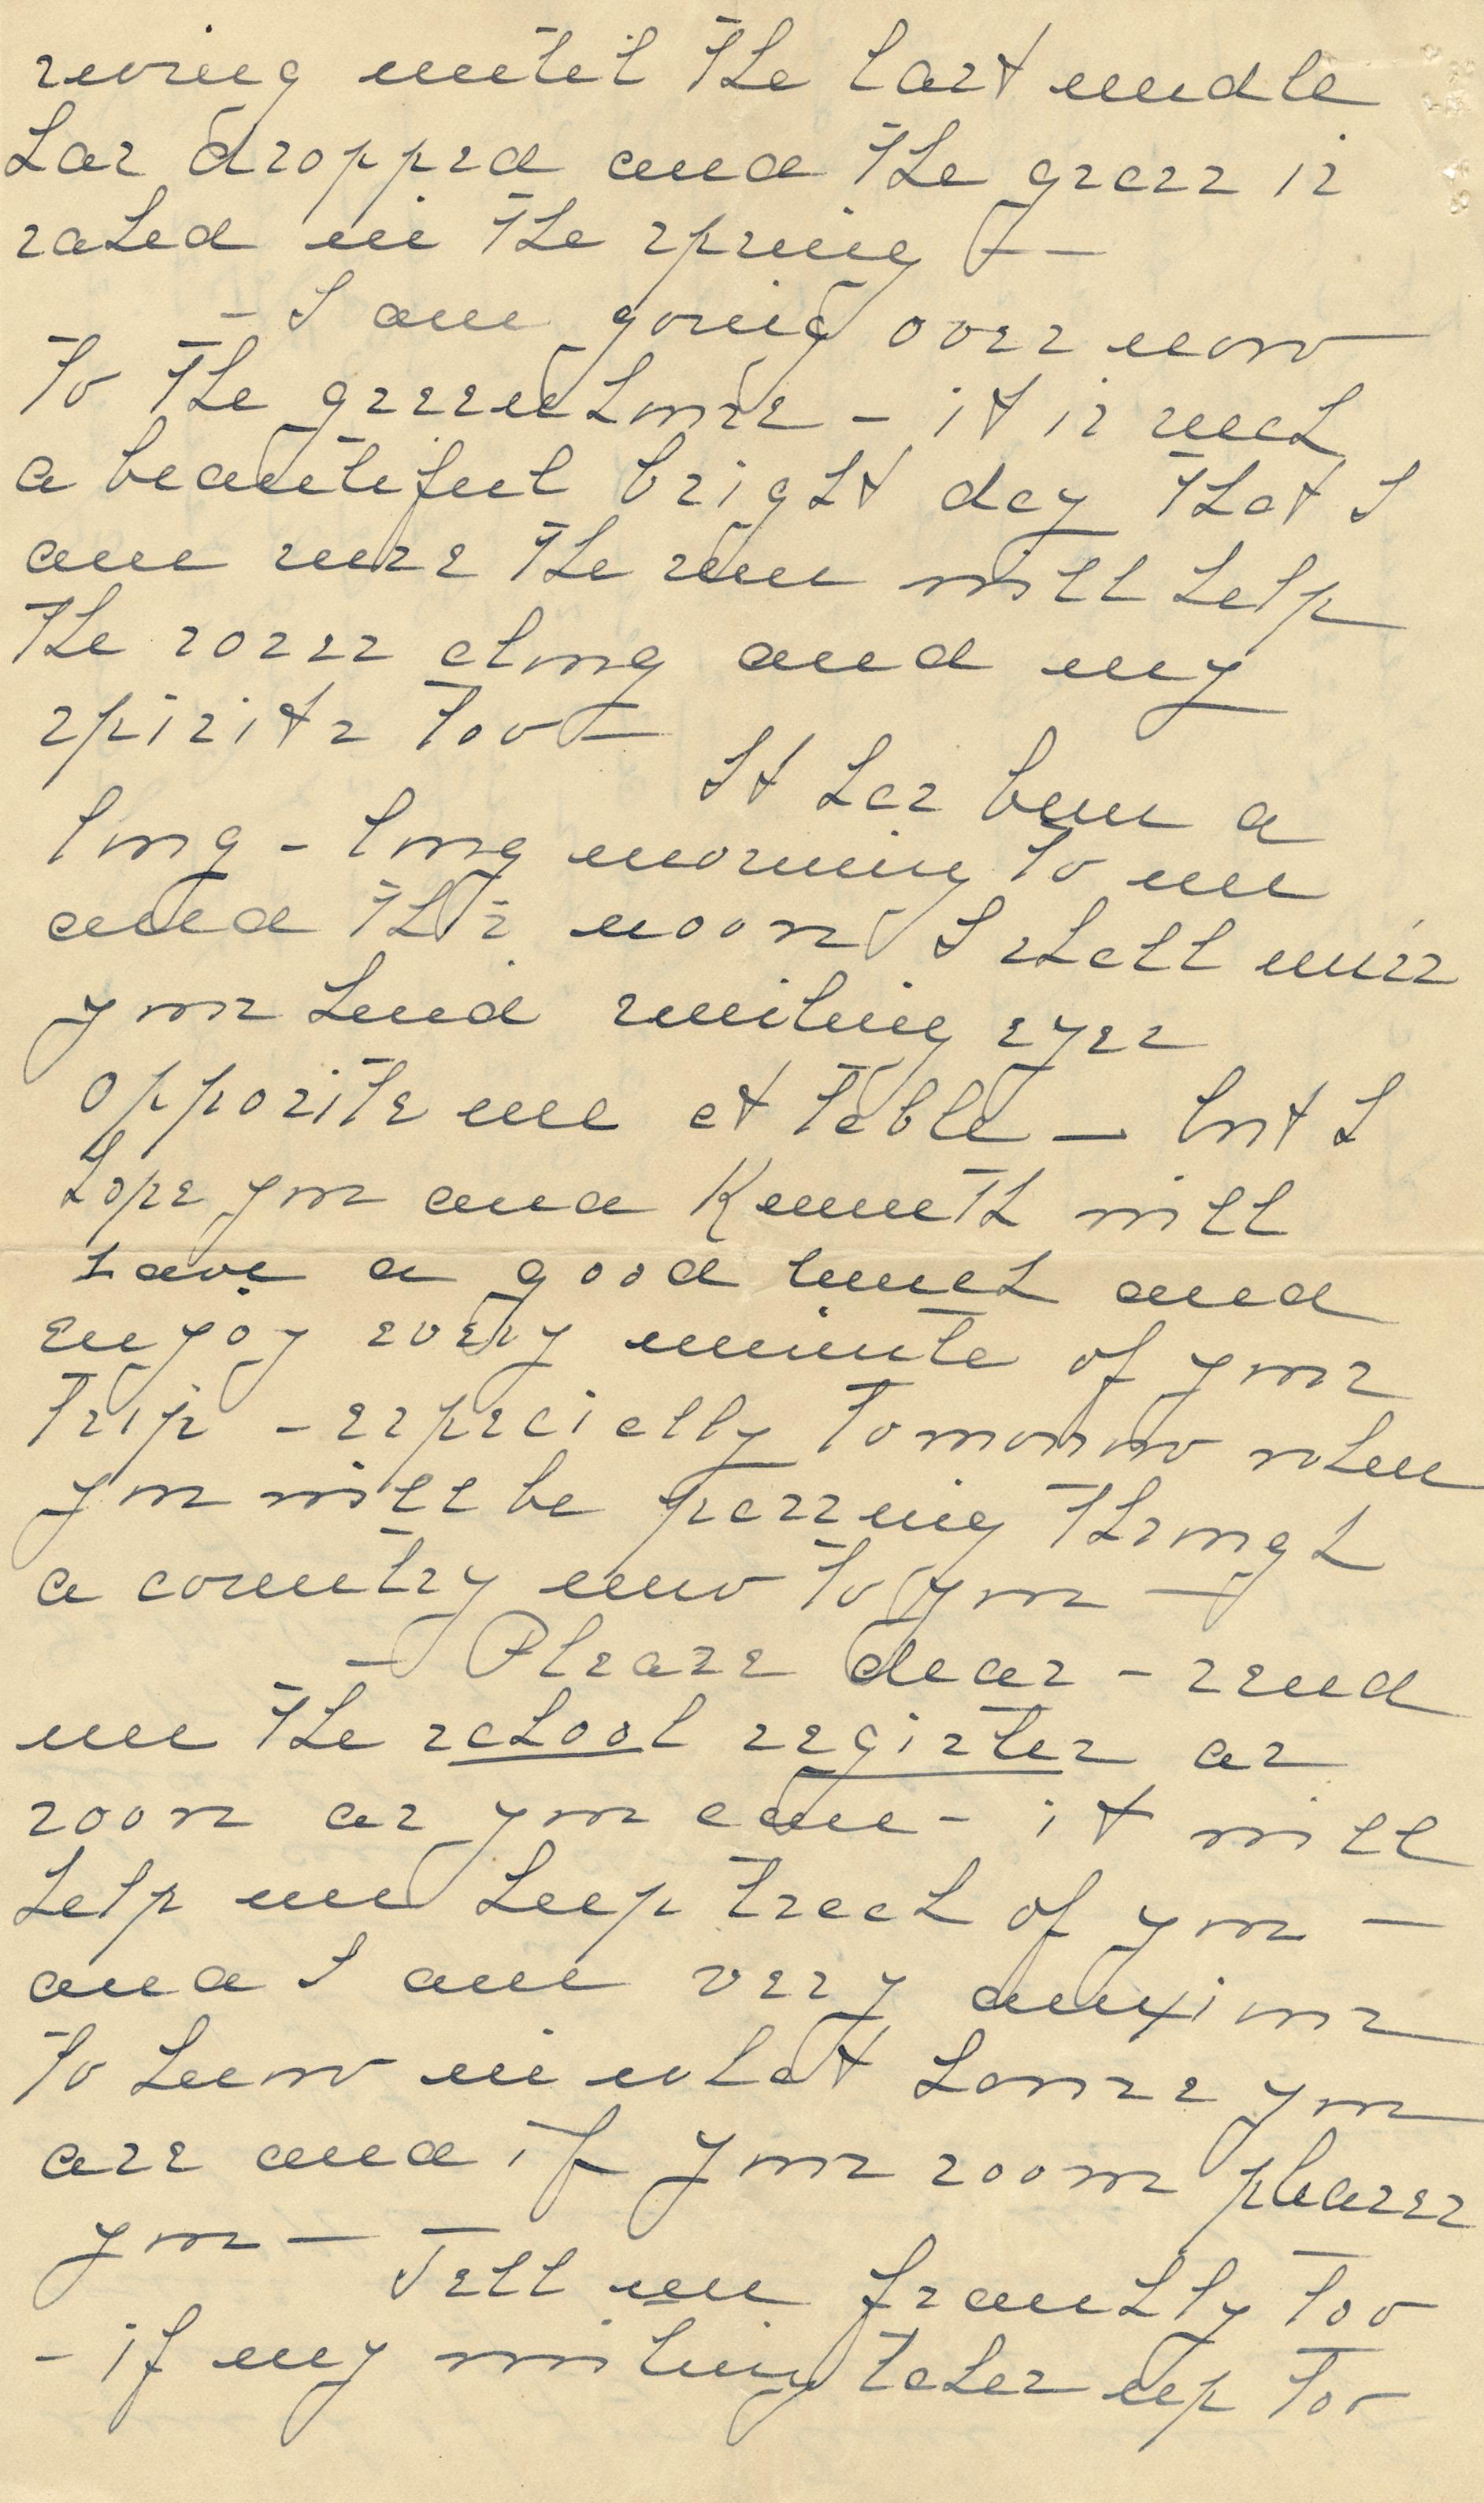 roving until the last needle
has dropped and the grass is
raked in the spring —
— I am going over now
to the greenhouse — it is such
a beautiful bright day that I
am sure the sun will help
the roses along and my
spirits too —
It has been a
long - long morning to me
and this noon I shall miss
your kind smiling eyes
opposite me at table — but I
hope you and Kenneth will
have a good lunch and
enjoy every minute of your
trip - especially tomorrow when
you will be passing through
a country new to you —
— Please dear - send
me the school register as
soon as you can - it will
help me keep track of you —
and I am very anxious
to know in what house you
are and if your room pleases
you — Tell me frankly too
- if my writing takes up too